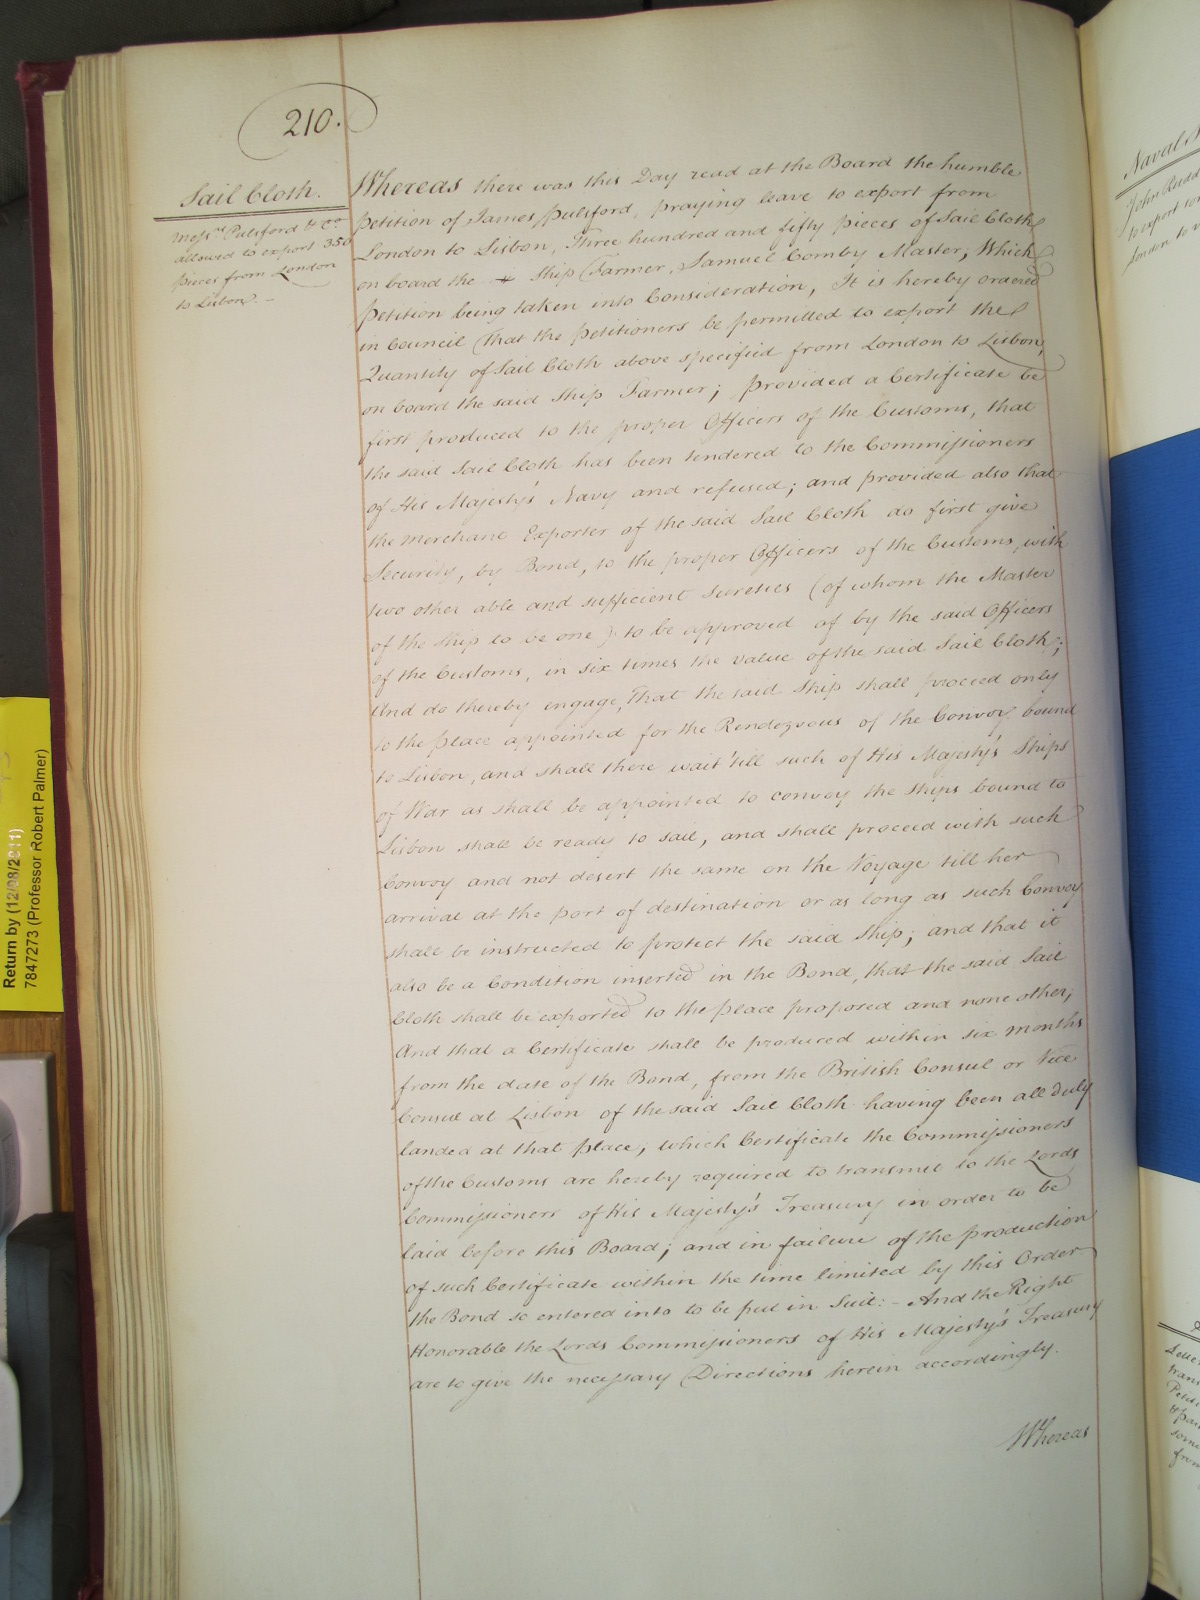 210.
Sail Cloth.
Messrs. Pulsford & Co
allowed to export 350
pieces from London
to Lisbon. -
Whereas there was this Day read at the Board the humble
Petition of James Pulsford, praying leave to export from
London to Lisbon, Three hundred and fifty pieces of Sail Cloth
on board the Ship Farmer, Samuel Comby Master, Which
Petition being taken into Consideration, It is hereby ordered
in Council That the Petitioners be permitted to export the
Quantity of Sail Cloth above specified from London to Lisbon,
on board the said Ship Farmer; provided a Certificate be
first produced to the proper Officers of the Customs, that
the said Sail Cloth has been tendered to the Commissioners
of His Majesty's Navy and refused; and provided also that
the Merchant Exporter of the said Sail Cloth do first give
Security, by Bond, to the proper Officers of the Customs, with
two other able and sufficient Sureties (of whom the Master
of the Ship to be one) to be approved of by the said Officers
of the Customs, in six times the value of the said Sail Cloth;
And do thereby engage, That the said Ship shall proceed only
to the place appointed for the Rendezvous of the Convoy bound
to Lisbon, and shall there wait 'till such of His Majesty's Ships
of War as shall be appointed to convoy the Ships bound to
Lisbon shall be ready to sail, and shall proceed with such
Convoy and not desert the same on the Voyage till her
arrival at the port of destination or as long as such Convoy
shall be instructed to protect the said Ship; and that it
also be a Condition inserted in the Bond, that the said Sail
Cloth shall be exported to the place proposed and none other;
And that a Certificate shall be produced within six months
from the date of the Bond, from the British Consul or Vice
Consul at Lisbon of the said Sail Cloth having been all duly
landed at that place, which Certificate the Commissioners
of the Customs are hereby required to transmit to the Lords
Commissioners of His Majesty's Treasury in order to be
laid before this Board; and in failure of the production
of such Certificate within the time limited by this Order
the Bond so entered into to be put in Suit: - And the Right
Honorable the Lords Commissioners of His Majesty's Treasury
are to give the necessary Directions herein accordingly.
Whereas
Return by (12/08/2011)
7847273 (Professor Robert Palmer)
Naval
John
to export
London to